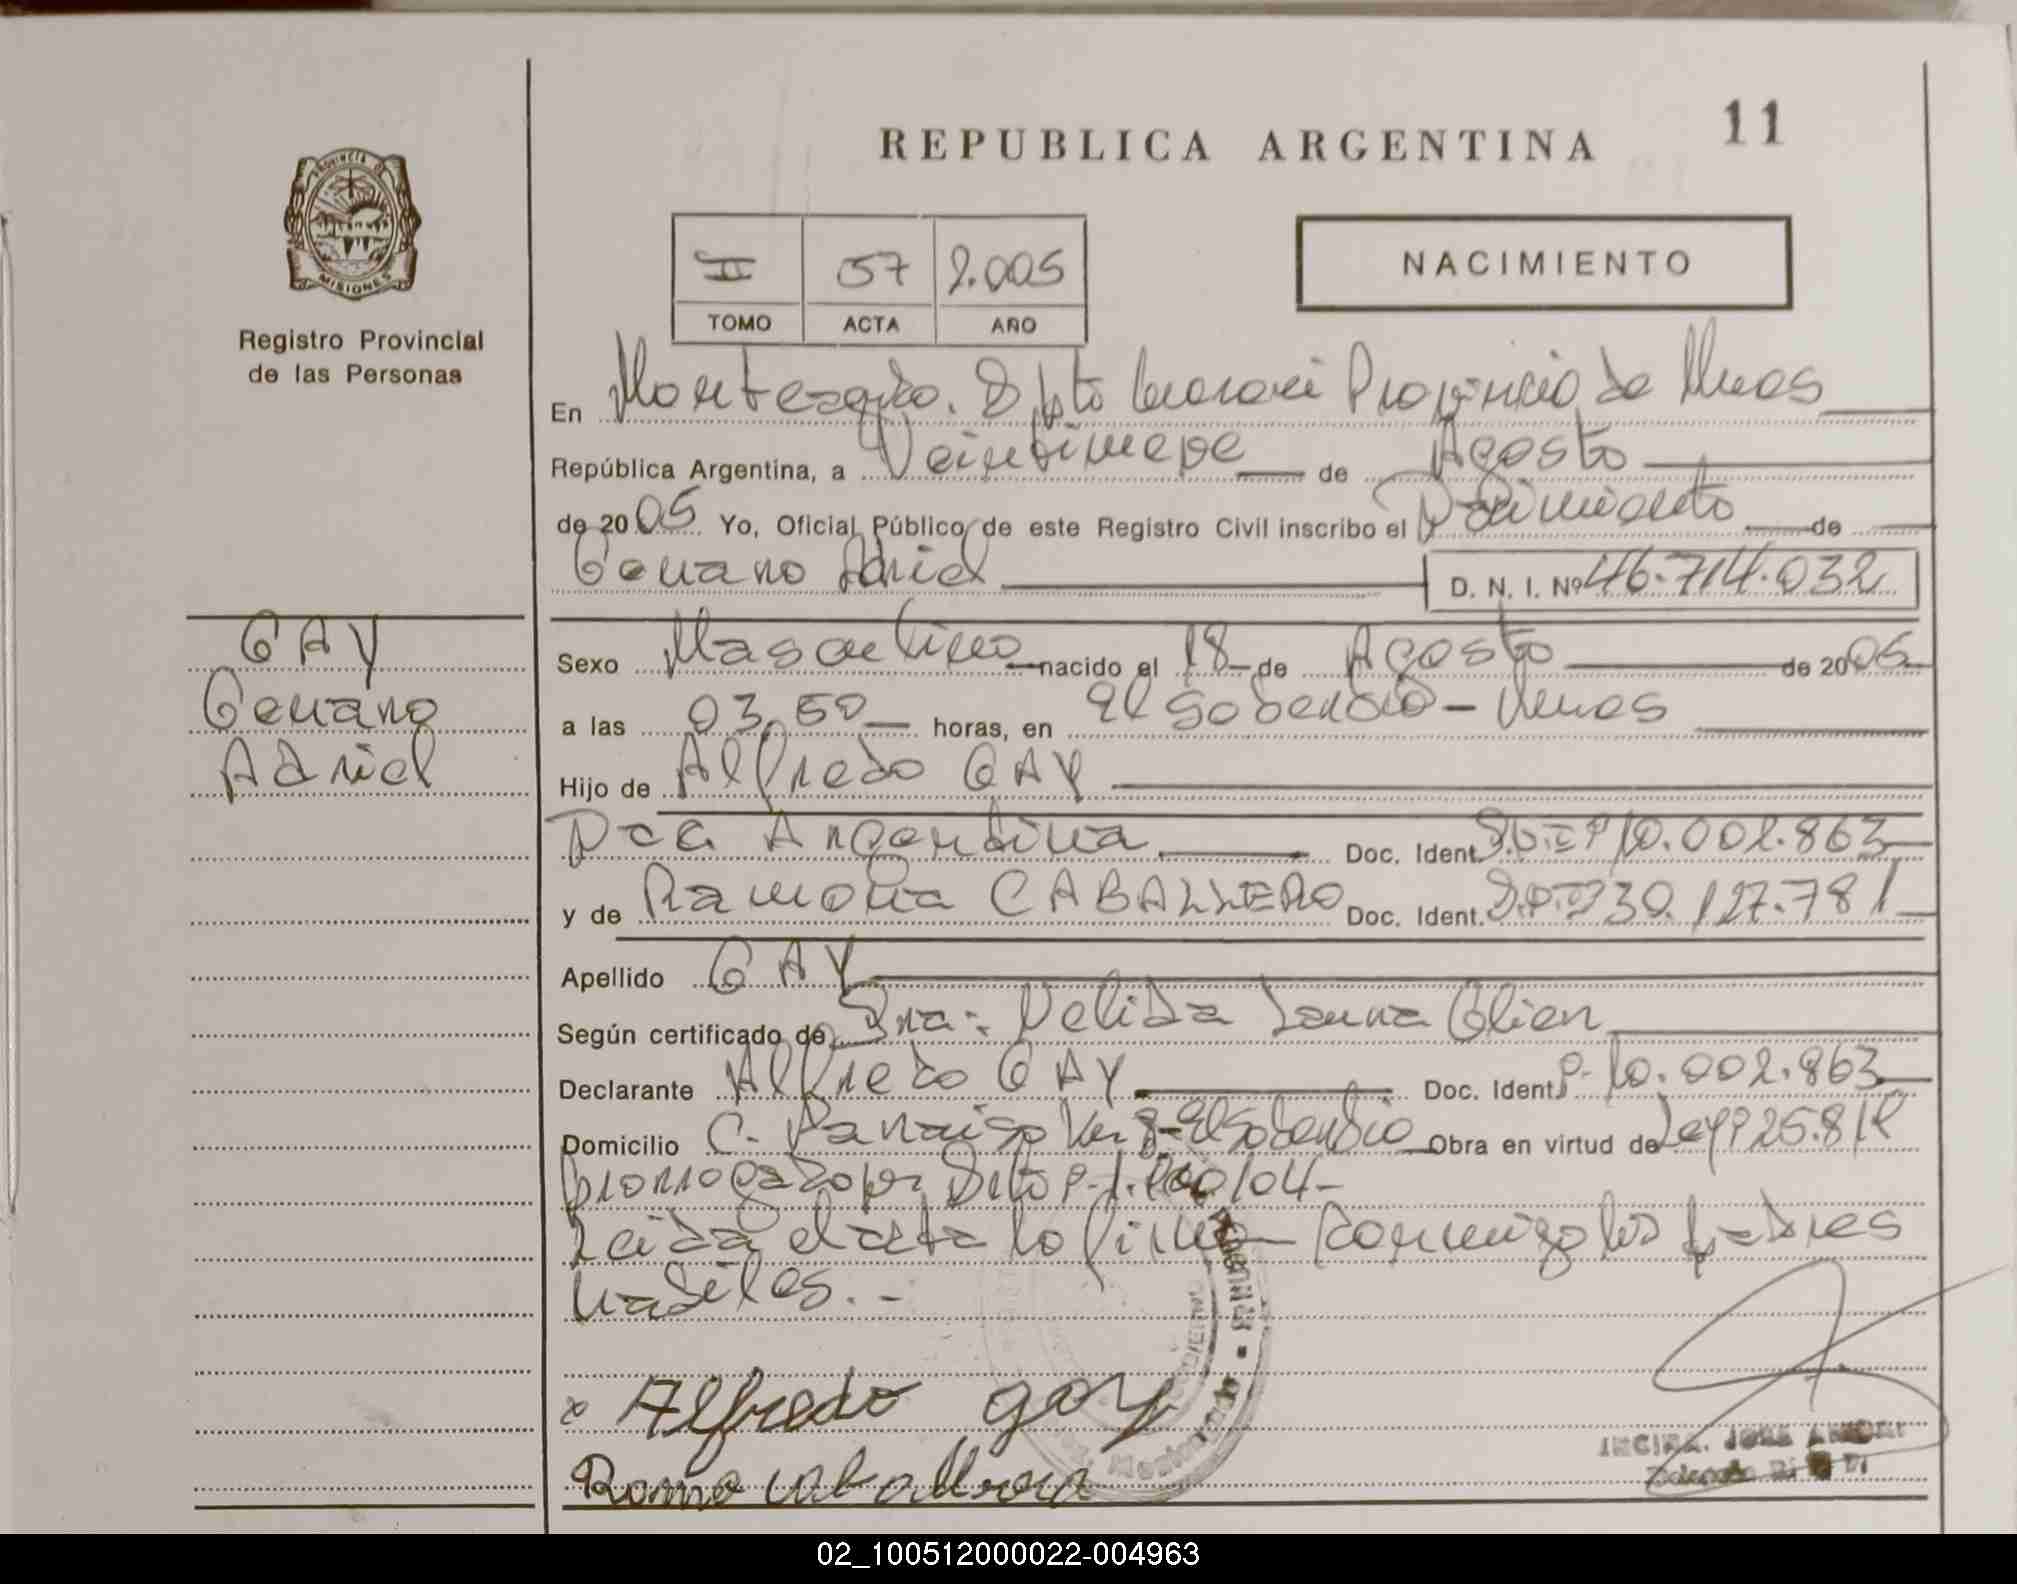 REPUBLICA ARGENTINA
11
PROVINCIA DE
MISIONES
Registro Provincial
de las Personas
II 57 2.005
TOMO ACTA AÑO
NACIMIENTO
En Monteagudo. Dpto Guarani Provincia de Mnes
República Argentina, a Veintinueve de Agosto
de 2005 Yo, Oficial Público de este Registro Civil inscribo el Nacimiento de
Genaro Adriel D. N. I. Nº 46.714.032
GAY
Genaro
Adriel
Sexo Masculino nacido el 18 de Agosto de 2005
a las 03,50 horas, en El Soberbio - Mnes
Hijo de Alfredo GAY
Nac. Argentina Doc. Ident. Nº 10.002.863
y de Ramona CABALLERO Doc. Ident. 30.127.781
Apellido GAY
Según certificado de Dra: Nelida Glien
Declarante Alfredo GAY Doc. Ident. Nº 10.002.863
Domicilio C. Paraiso Km 8 - El Soberbio Obra en virtud de Ley Nº 25.819
prorrogado por Dcto Nº 1.
Leida el acta la firman conmigo los padres
x Alfredo gay
Romona caballero
02_100512000022-004963